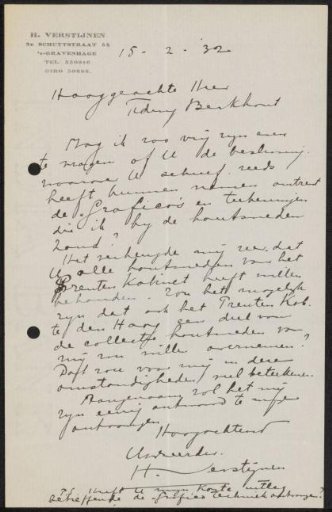 H. VERSTIJNEN
2e SCHUYTSTRAAT 55
's-GRAVENHAGE
TEL. 550846
GIRO
15-2-32
Hooggeachte Heer
Tideman Berkhout
Mag ik zoo vrij zijn even
te vragen of U de beslissing
waarover U schreef reeds
heeft kunnen nemen omtrent
de Grafico's en teekeningen
die ik by de houtsneden
zond?
Het verheugde mij zeer, dat
U alle houtsneden van het
Prenten Kabinet heeft willen
behouden. Zou het mogelijk
zijn dat ook het Prenten Kab.
te den Haag een deel van
de collectie houtsneden van
mij zou willen overnemen?
Dat zou voor mij in deze
omstandigheden veel beteekenen.
Aangenaam zal het mij
zijn eenig antwoord te mogen
ontvangen.
Hoogachtend
Uw
H. Verstijnen
U mijn korte uitleg
betreffende de grafico techniek ontvangen?